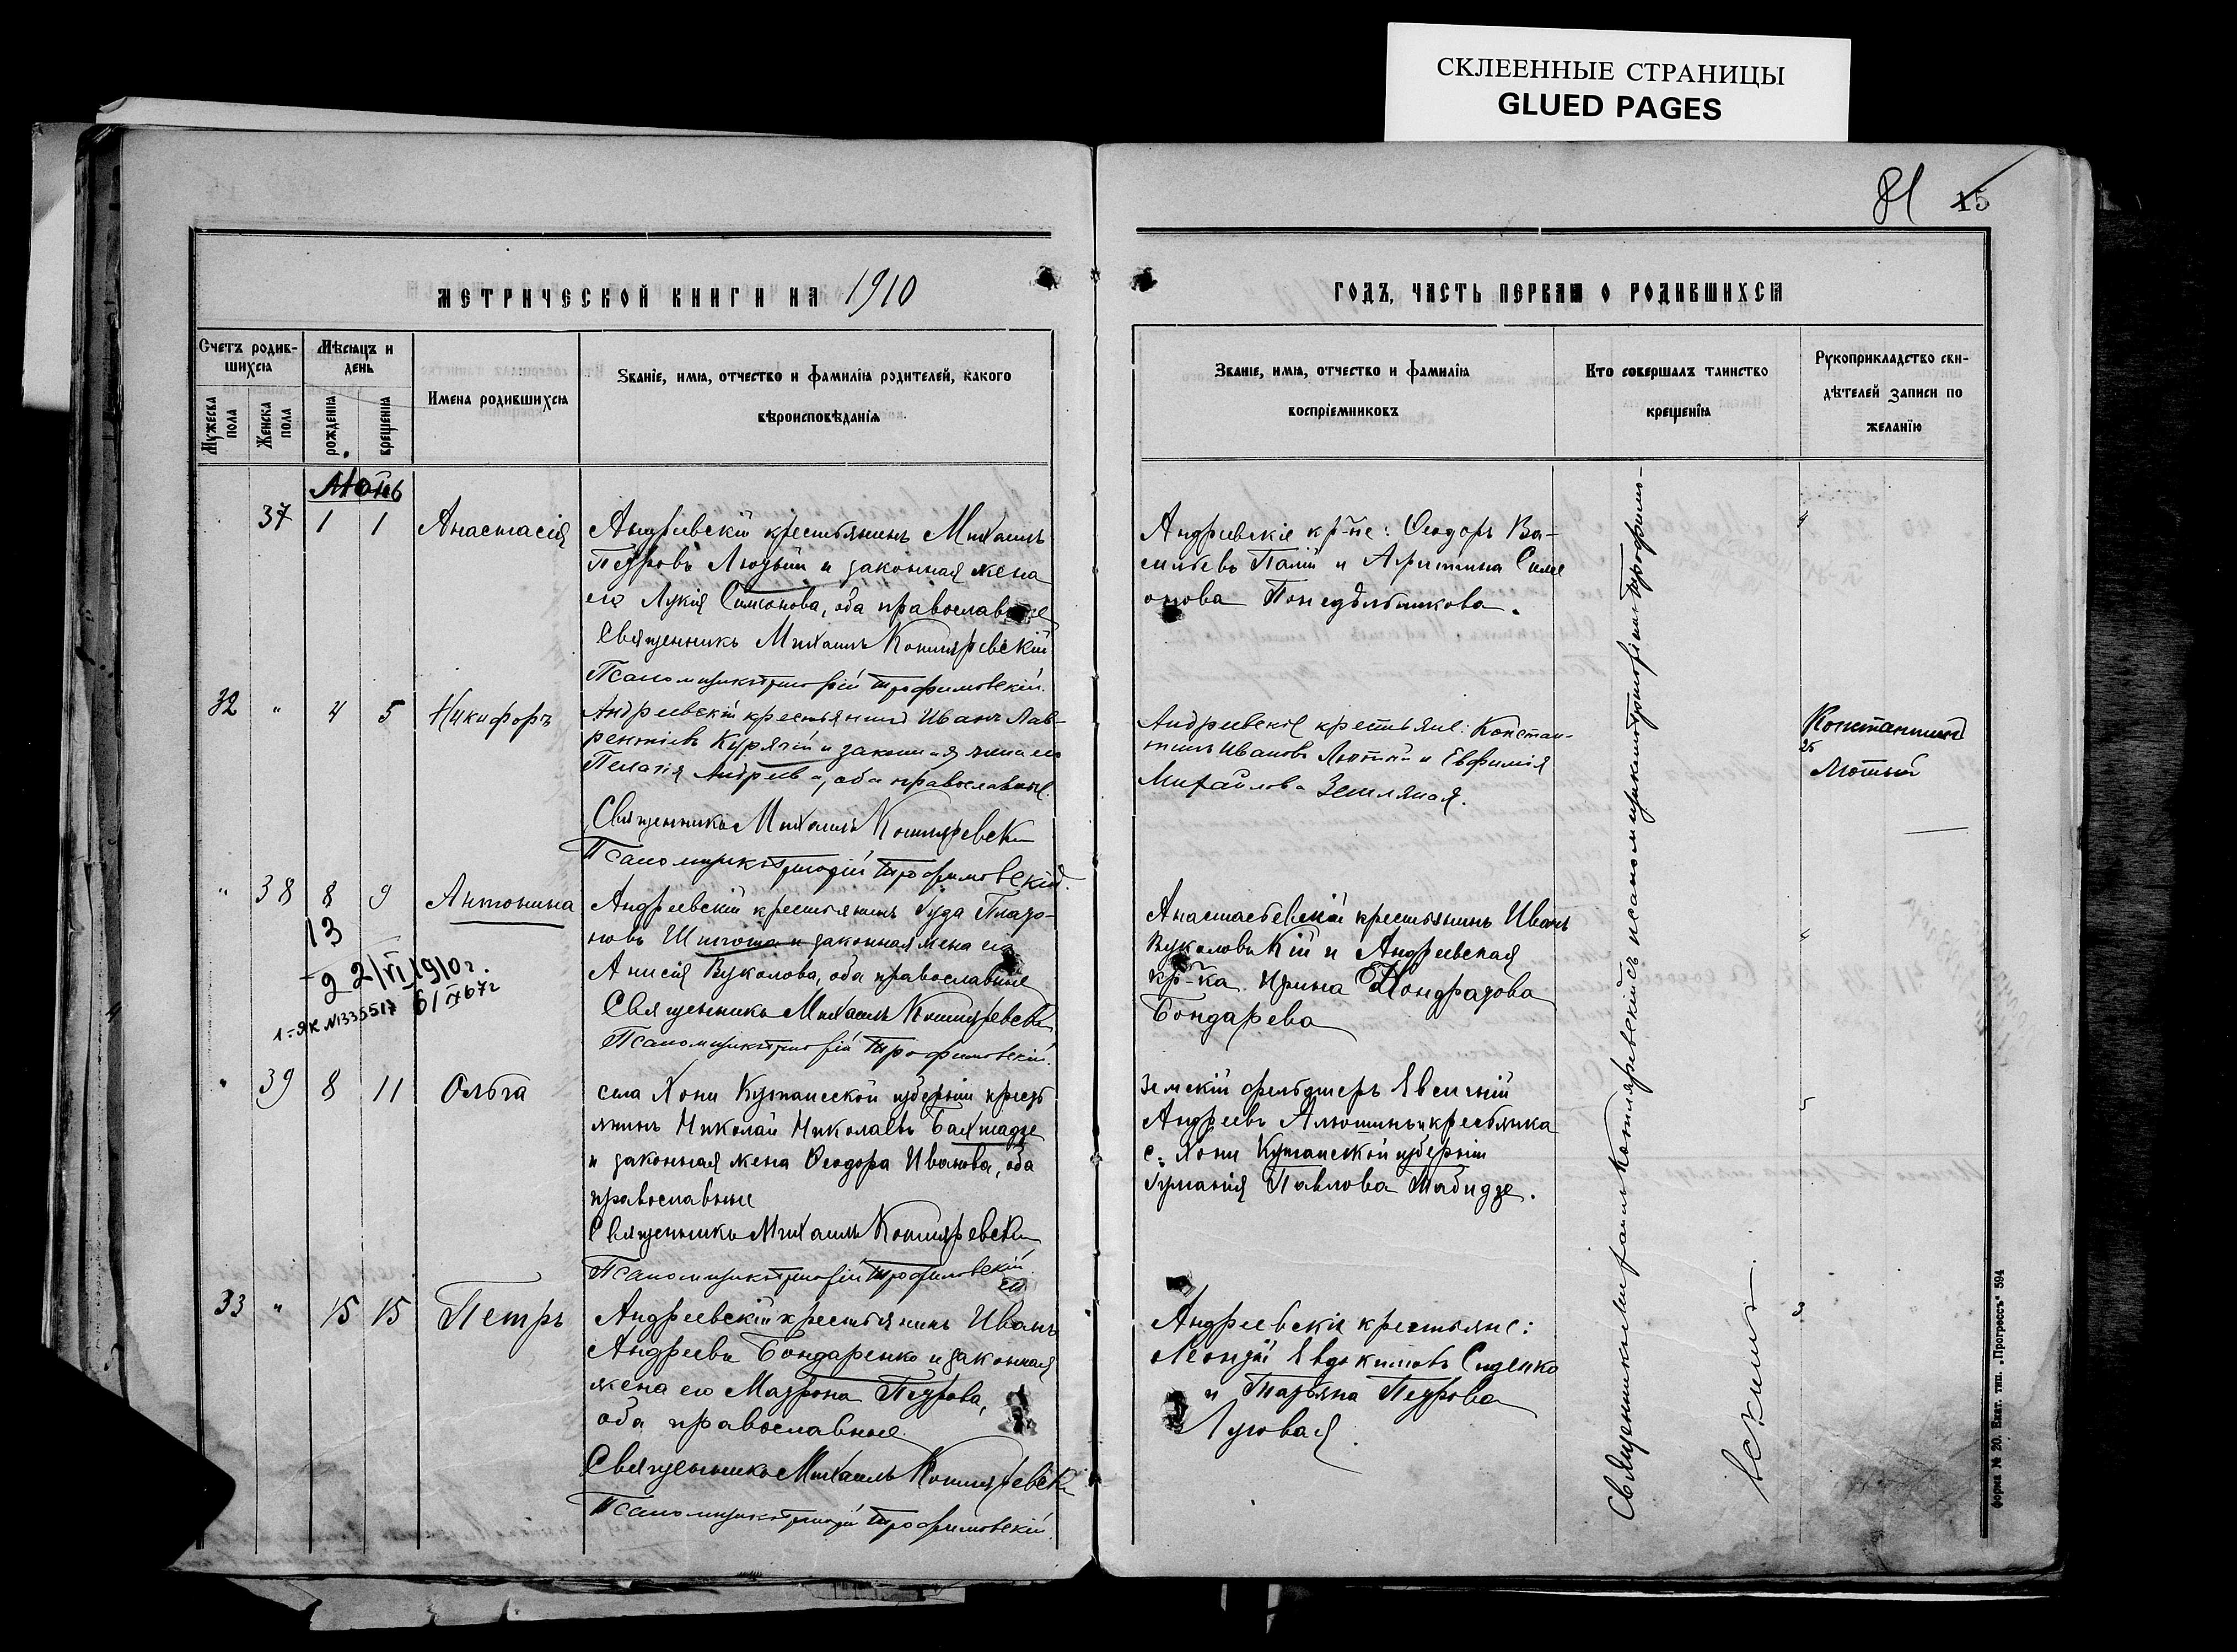 СКЛЕЕННЫЕ СТРАНИЦЫ
GLUED PAGES
81 15
МЕТРИЧЕСКОЙ КНИГИ НА 1910
Счетъ родив-
шихся
Мѣсяцъ и
день
Мужеска
пола
Женска
пола
рожденія
крещенія
Имена родившихся
Званіе, имя, отчество и фамилія родителей, какого
вѣроисповѣданія
Іюнь
37 1 1 Анастасія
Андреевскій крестьянинъ Михаилъ
Петровъ и законная жена
его Лукія Симеонова, оба православные
Священникъ Михаилъ Котляревскій
Псаломщикъ Трофимовскій
32 " 4 5 Никифоръ
Андреевскій крестьянинъ Иванъ Лав-
рентіевъ Курячій и законная жена его
Пелагія Андреева, оба православные.
Священникъ Михаилъ Котляревскій
Псаломщикъ Трофимовскій.
" 38 8 9 Антонина
13
22/VI 1910г.
6/IX 67г
Андреевскій крестьянинъ Іуда Плато-
новъ и законная жена его
Анисія Вуколова, оба православные
Священникъ Михаилъ Котляревскій
Псаломщикъ Трофимовскій.
" 39 8 11 Ольга
села Хони Кутаисской губерніи кресть
янинъ Николай Николаевъ Бахтадзе
и законная жена Ѳеодора Иванова, оба
православные
Священникъ Михаилъ Котляревскій
Псаломщикъ Трофимовскій
33 " 15 15 Петръ
Андреевскій крестьянинъ Иванъ
Андреевъ Бондаренко и законная
жена его Матрона Петрова,
оба православные.
Священникъ Михаилъ Котляревскій
Псаломщикъ Трофимовскій.
ГОДЪ, ЧАСТЬ ПЕРВАЯ О РОДИВШИХСЯ
Званіе, имя, отчество и фамилія
воспріемниковъ
Кто совершалъ таинство
крещенія
Рукоприкладство сви-
дѣтелей записи по
желанію
Андреевскіе кр-не: Ѳеодоръ Ва-
сильевъ Палій и Агриппина Симе
онова Понедѣльникова.
Андреевскіе крестьяне: Констан-
тинъ Ивановъ Лютый и Евфимія
Михайлова Земляная.
Константинъ
Лютый
Анастасьевскій крестьянинъ Иванъ
Вуколовъ Кій и Андреевская
кр-ка Ирина Кондратова
Бондарева
Земскій фельдшеръ Евгеній
Андреевъ Алютинъ и крестьянка
с. Хони Кутаисской губерніи
Павлова Табидзе.
Андреевскіе крестьяне:
Леонтій Евдокимовъ Сиденко
и Татьяна Петрова
Луговая.
Священникъ Михаилъ Котляревскій съ псаломщикомъ Трофимо-
вскимъ
форма № 20. Екат. тип. „Прогрессъ" 594